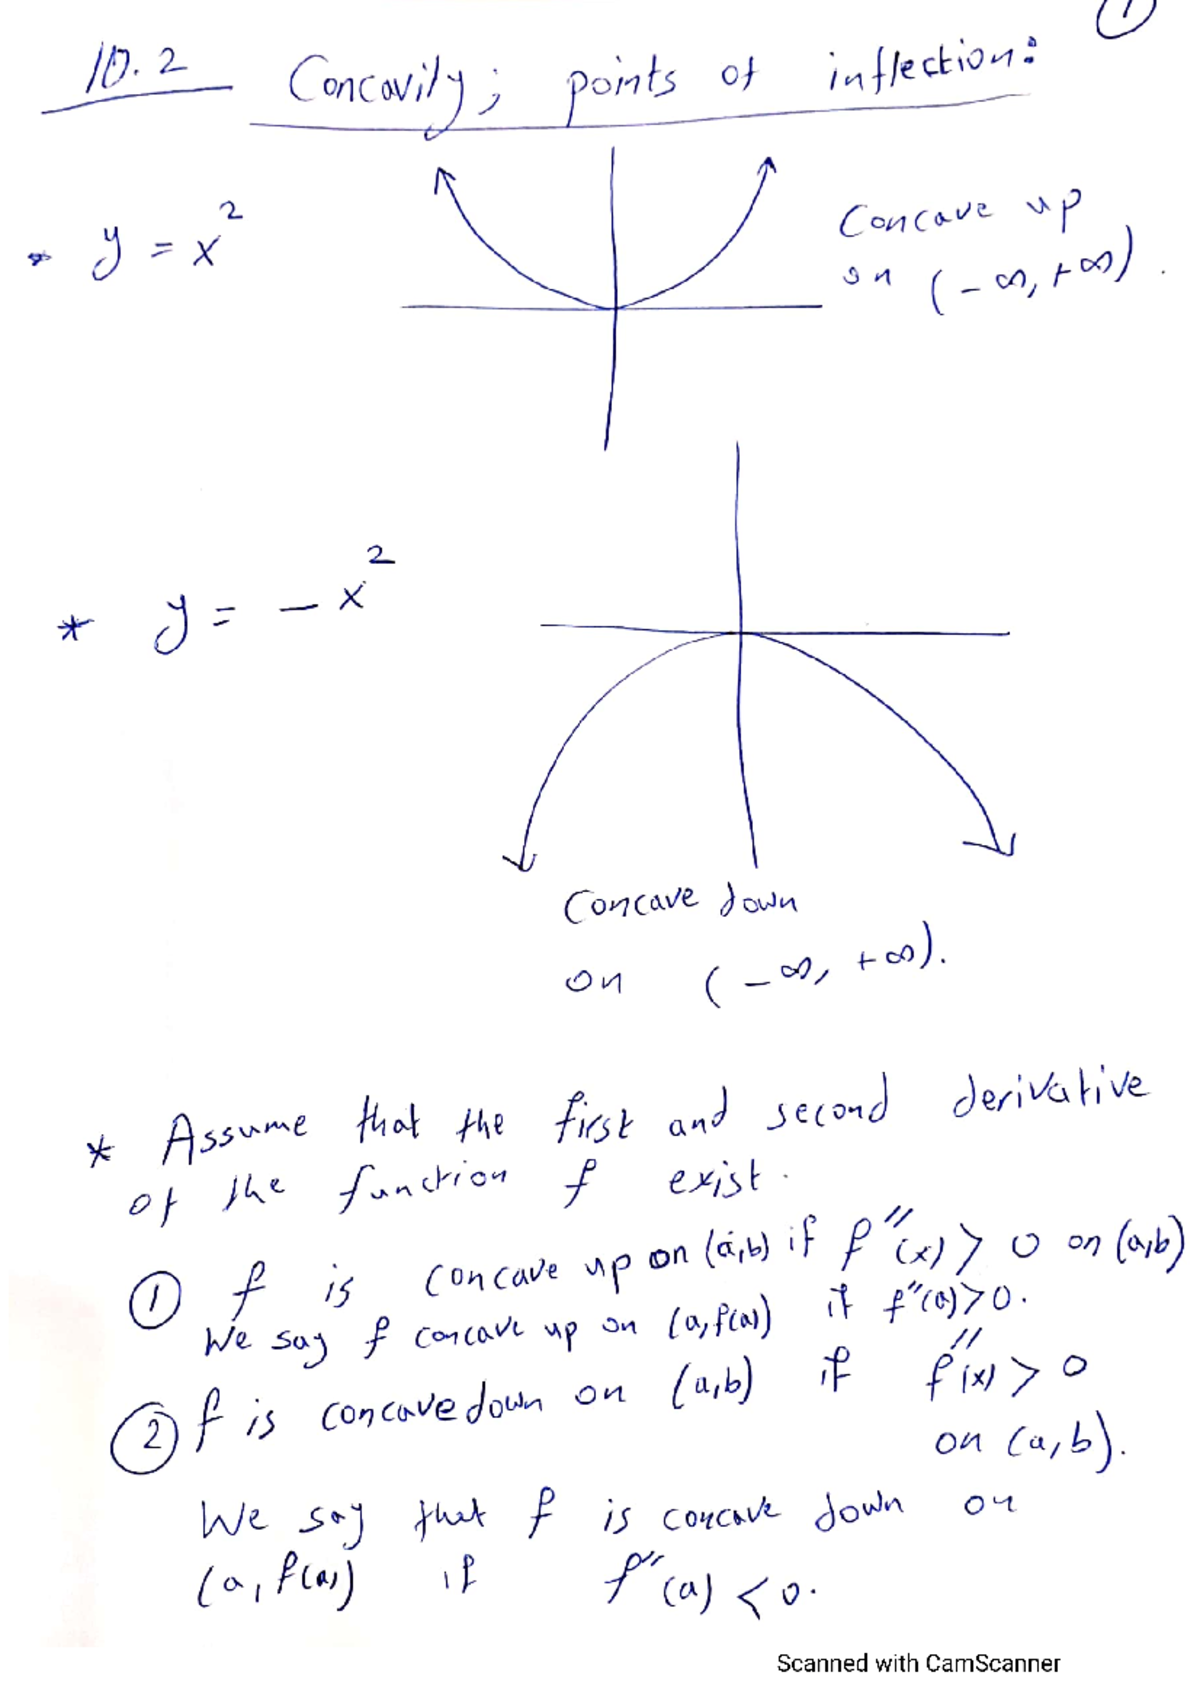 1
10.2 Concavity; points of inflection:
* y = x²
Concave up
on (-∞, +∞).
* y = - x²
Concave down
on (-∞, +∞).
* Assume that the first and second derivative
of the function f exist.
① f is concave up on (a,b) if f''(x) > 0 on (a,b)
We say f concave up on (a, f(a)) if f''(a) > 0.
② f is concave down on (a,b) if f''(x) > 0
on (a,b).
We say that f is concave down on
(a, f(a)) if f''(a) < 0.
Scanned with CamScanner